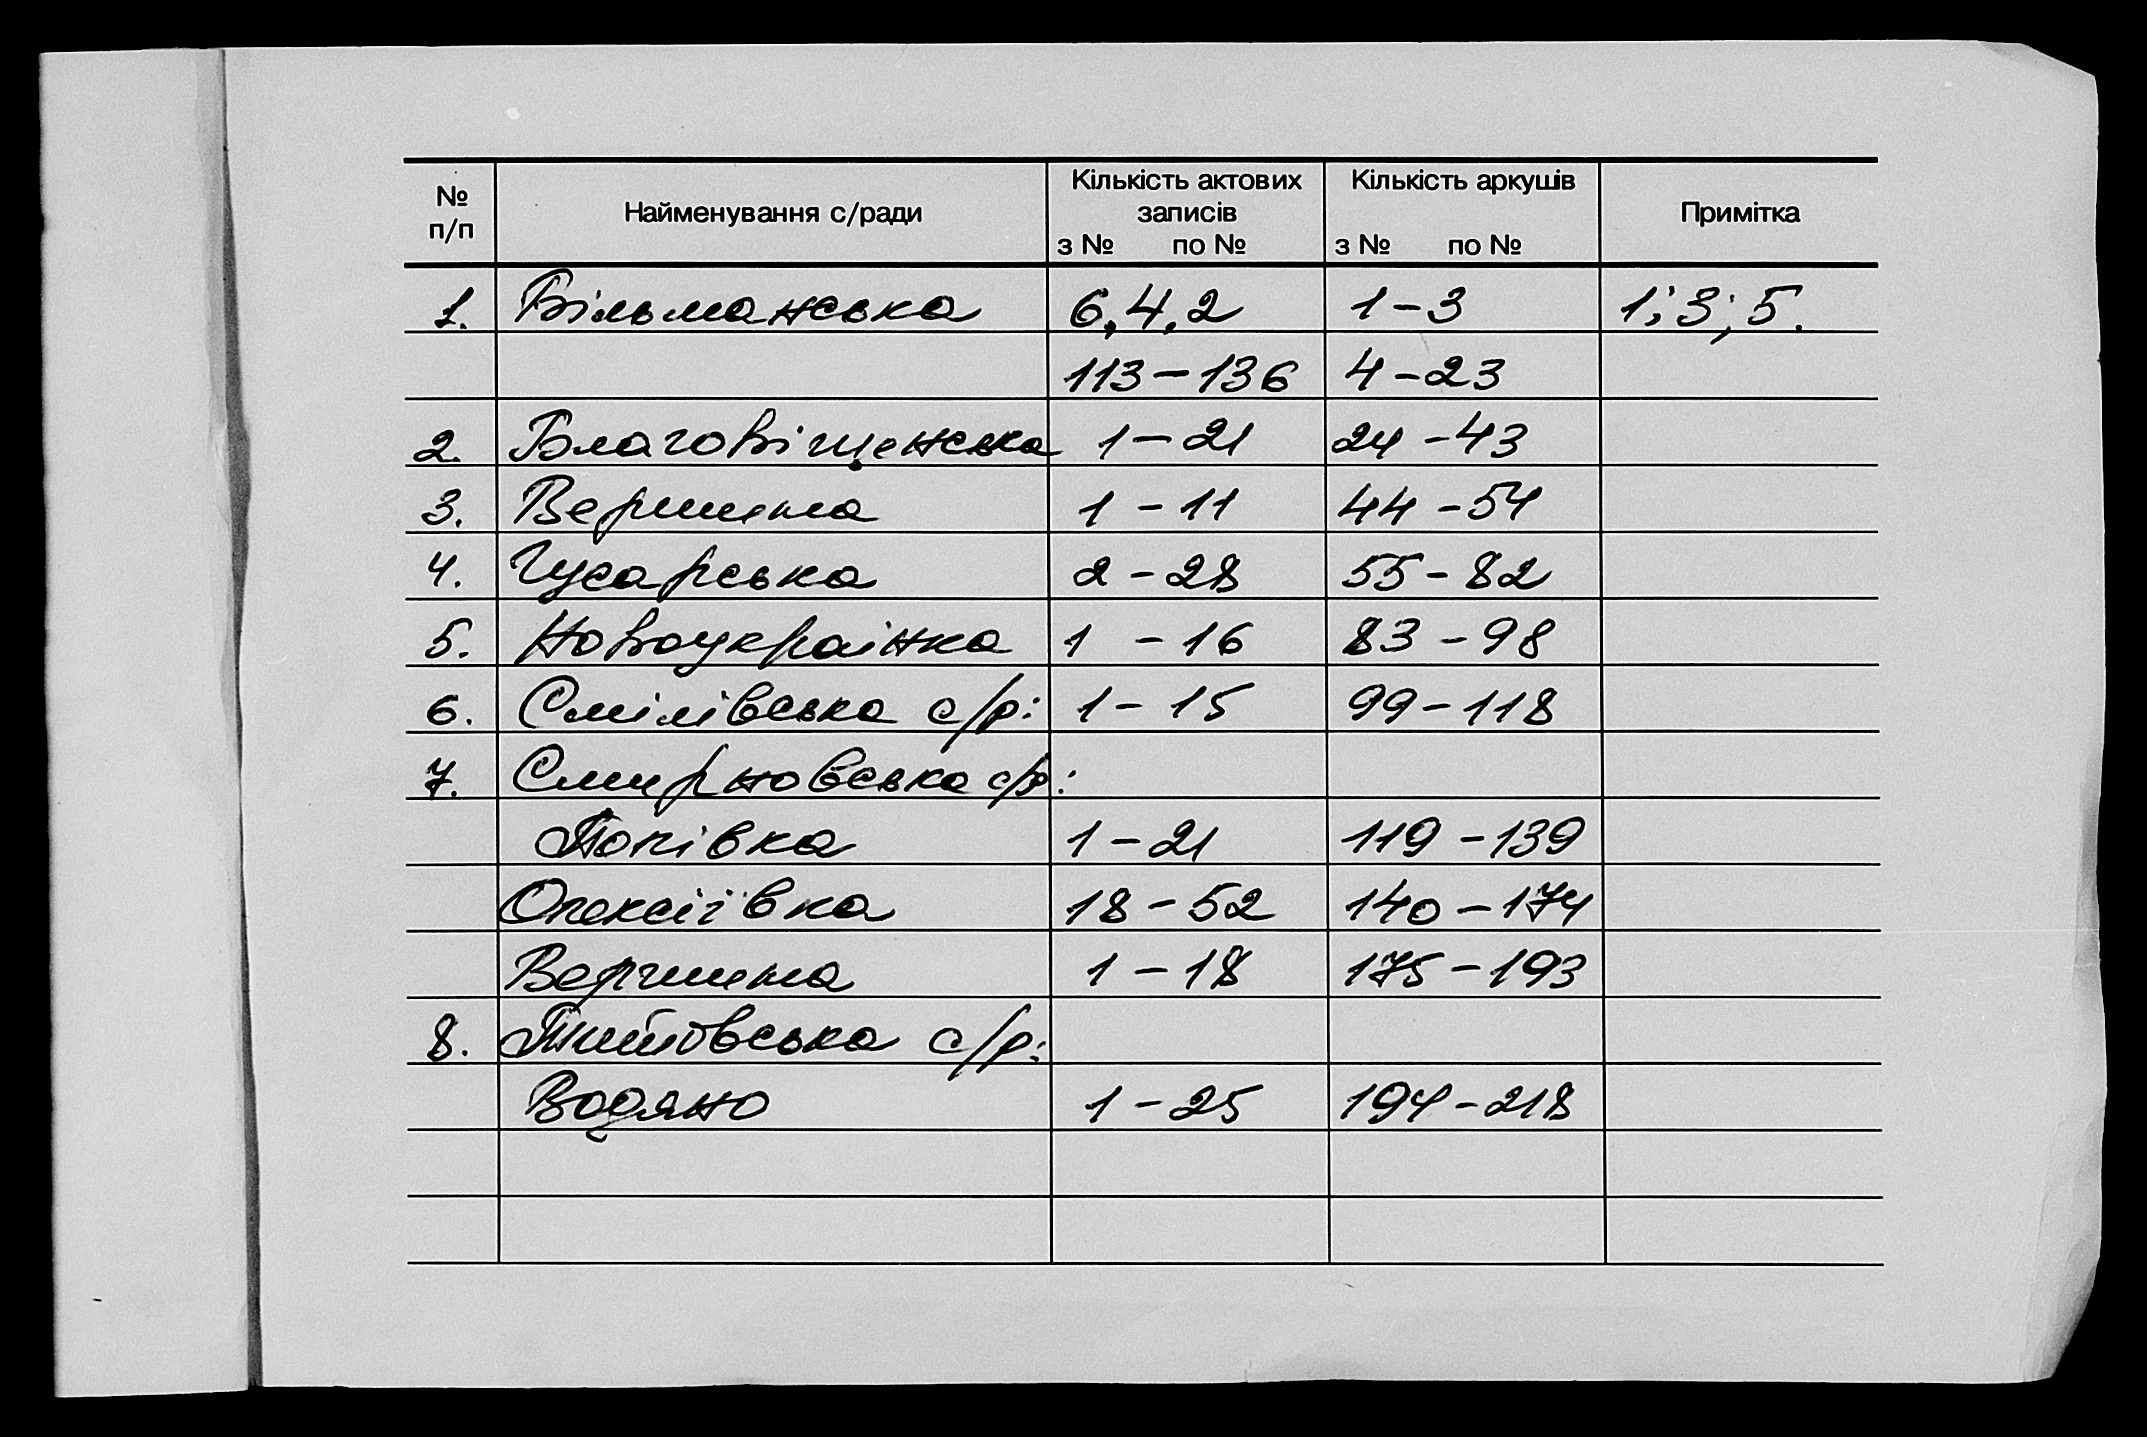 № п/п Найменування с/ради Кількість актових записів з № по № Кількість аркушів з № по № Примітка
1. Більманська 6,4,2 1-3 1; 3; 5.
113-136 4-23
2. Благовіщенська 1-21 24-43
3. Вершина 1-11 44-54
4. Гусарська 2-28 55-82
5. Новоукраінка 1-16 83-98
6. Смілівська с/р: 1-15 99-118
7. Смирновська с/р:
Попівка 1-21 119-139
Олексіївка 18-52 140-174
Вершина 1-18 175-193
8. Титовська с/р:
Водяно 1-25 194-218